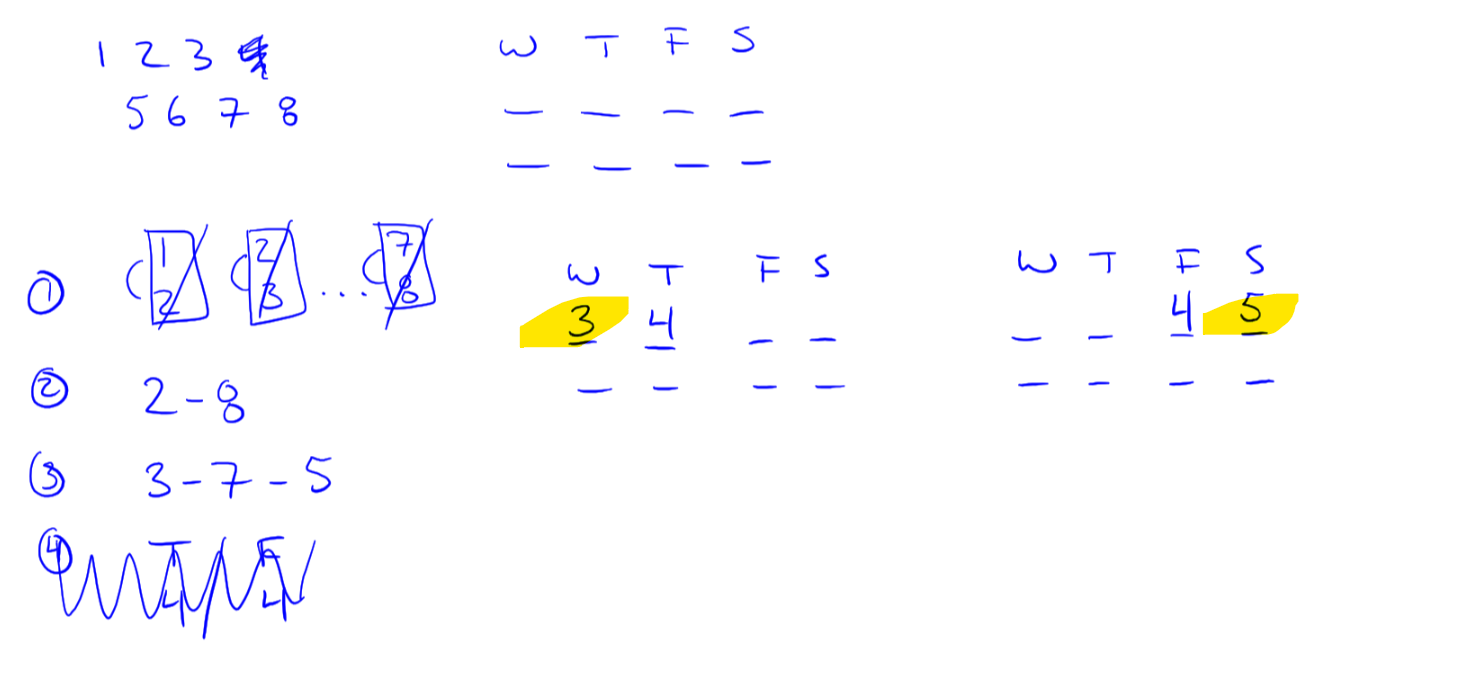 1 2 3
5 6 7 8
W T F S
① 1 2 2 3 ... 7 8
② 2-8
③ 3-7-5
④ T F
4 4
W T F S
3 4
W T F S
4 5